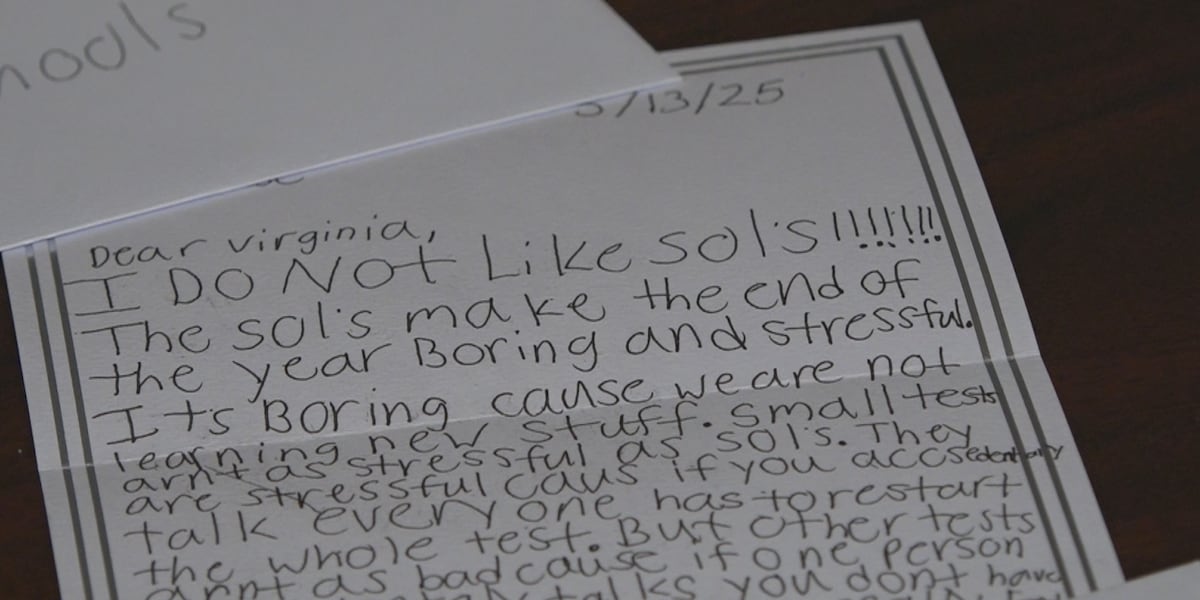 hools
5/13/25
Dear virginia,
I DO NOT Like SOl's!!!!!!!
The SOl's make the end of
the year Boring and stressful.
It's Boring cause we are not
learning new stuff. Small tests
arnt as stressful as SOl's. They
are stressful caus if you accsedentaly
talk everyone has to restart
the whole test. But other tests
arnt as bad cause if one person
talks you dont have